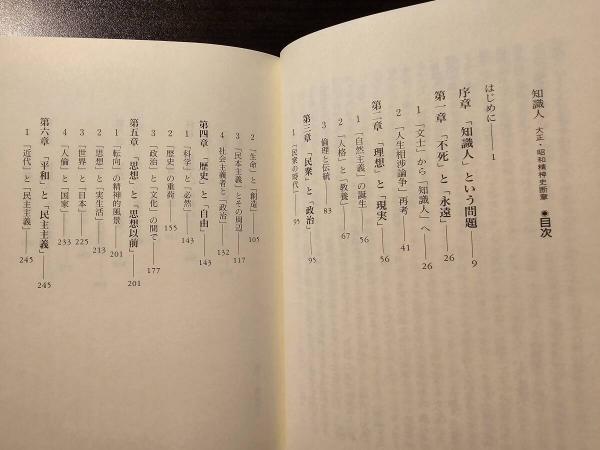 知識人 大正・昭和精神史断章 ●目次
はじめに——1
序章 「知識人」という問題——9
第一章 「不死」と「永遠」——26
1 「文士」から「知識人」へ——26
2 「人生相渉論争」再考——41
第二章 「理想」と「現実」——56
1 「自然主義」の誕生——56
2 「人格」と「教養」——67
3 倫理と伝統——83
第三章 「民衆」と「政治」——95
1 「民衆の時代」——95
2 「生命」と「創造」——105
3 「民本主義」とその周辺——117
4 社会主義者と「政治」——132
第四章 「歴史」と「自由」——143
1 「科学」と「必然」——143
2 「歴史」の重荷——155
3 「政治」と「文化」の間で——177
第五章 「思想」と「思想以前」——201
1 「転向」の精神的風景——201
2 「思想」と「実生活」——213
3 「世界」と「日本」——225
4 「人倫」と「国家」——233
第六章 「平和」と「民主主義」——245
1 「近代」と「民主主義」——245